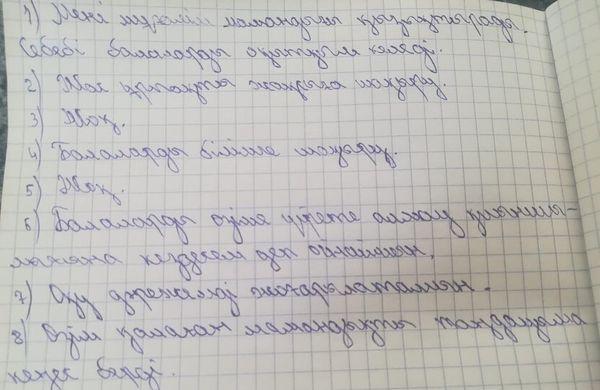 1) Мені мұғалім мамандығы қызықтырады.
Себебі балаларды оқытқым келеді.
2) Жас ұрпақты жақсыға шақыру.
3) Жоқ.
4) Балаларды білімге шақыру.
5) Жоқ.
6) Балаларды өзіме үйрете алмау қиыншы-
кездесем деп ойлаймын.
7) Оқу деңгейімді жоғарылатамын.
8) Өзім қалаған мамандықты таңдауыма
кеңес берді.